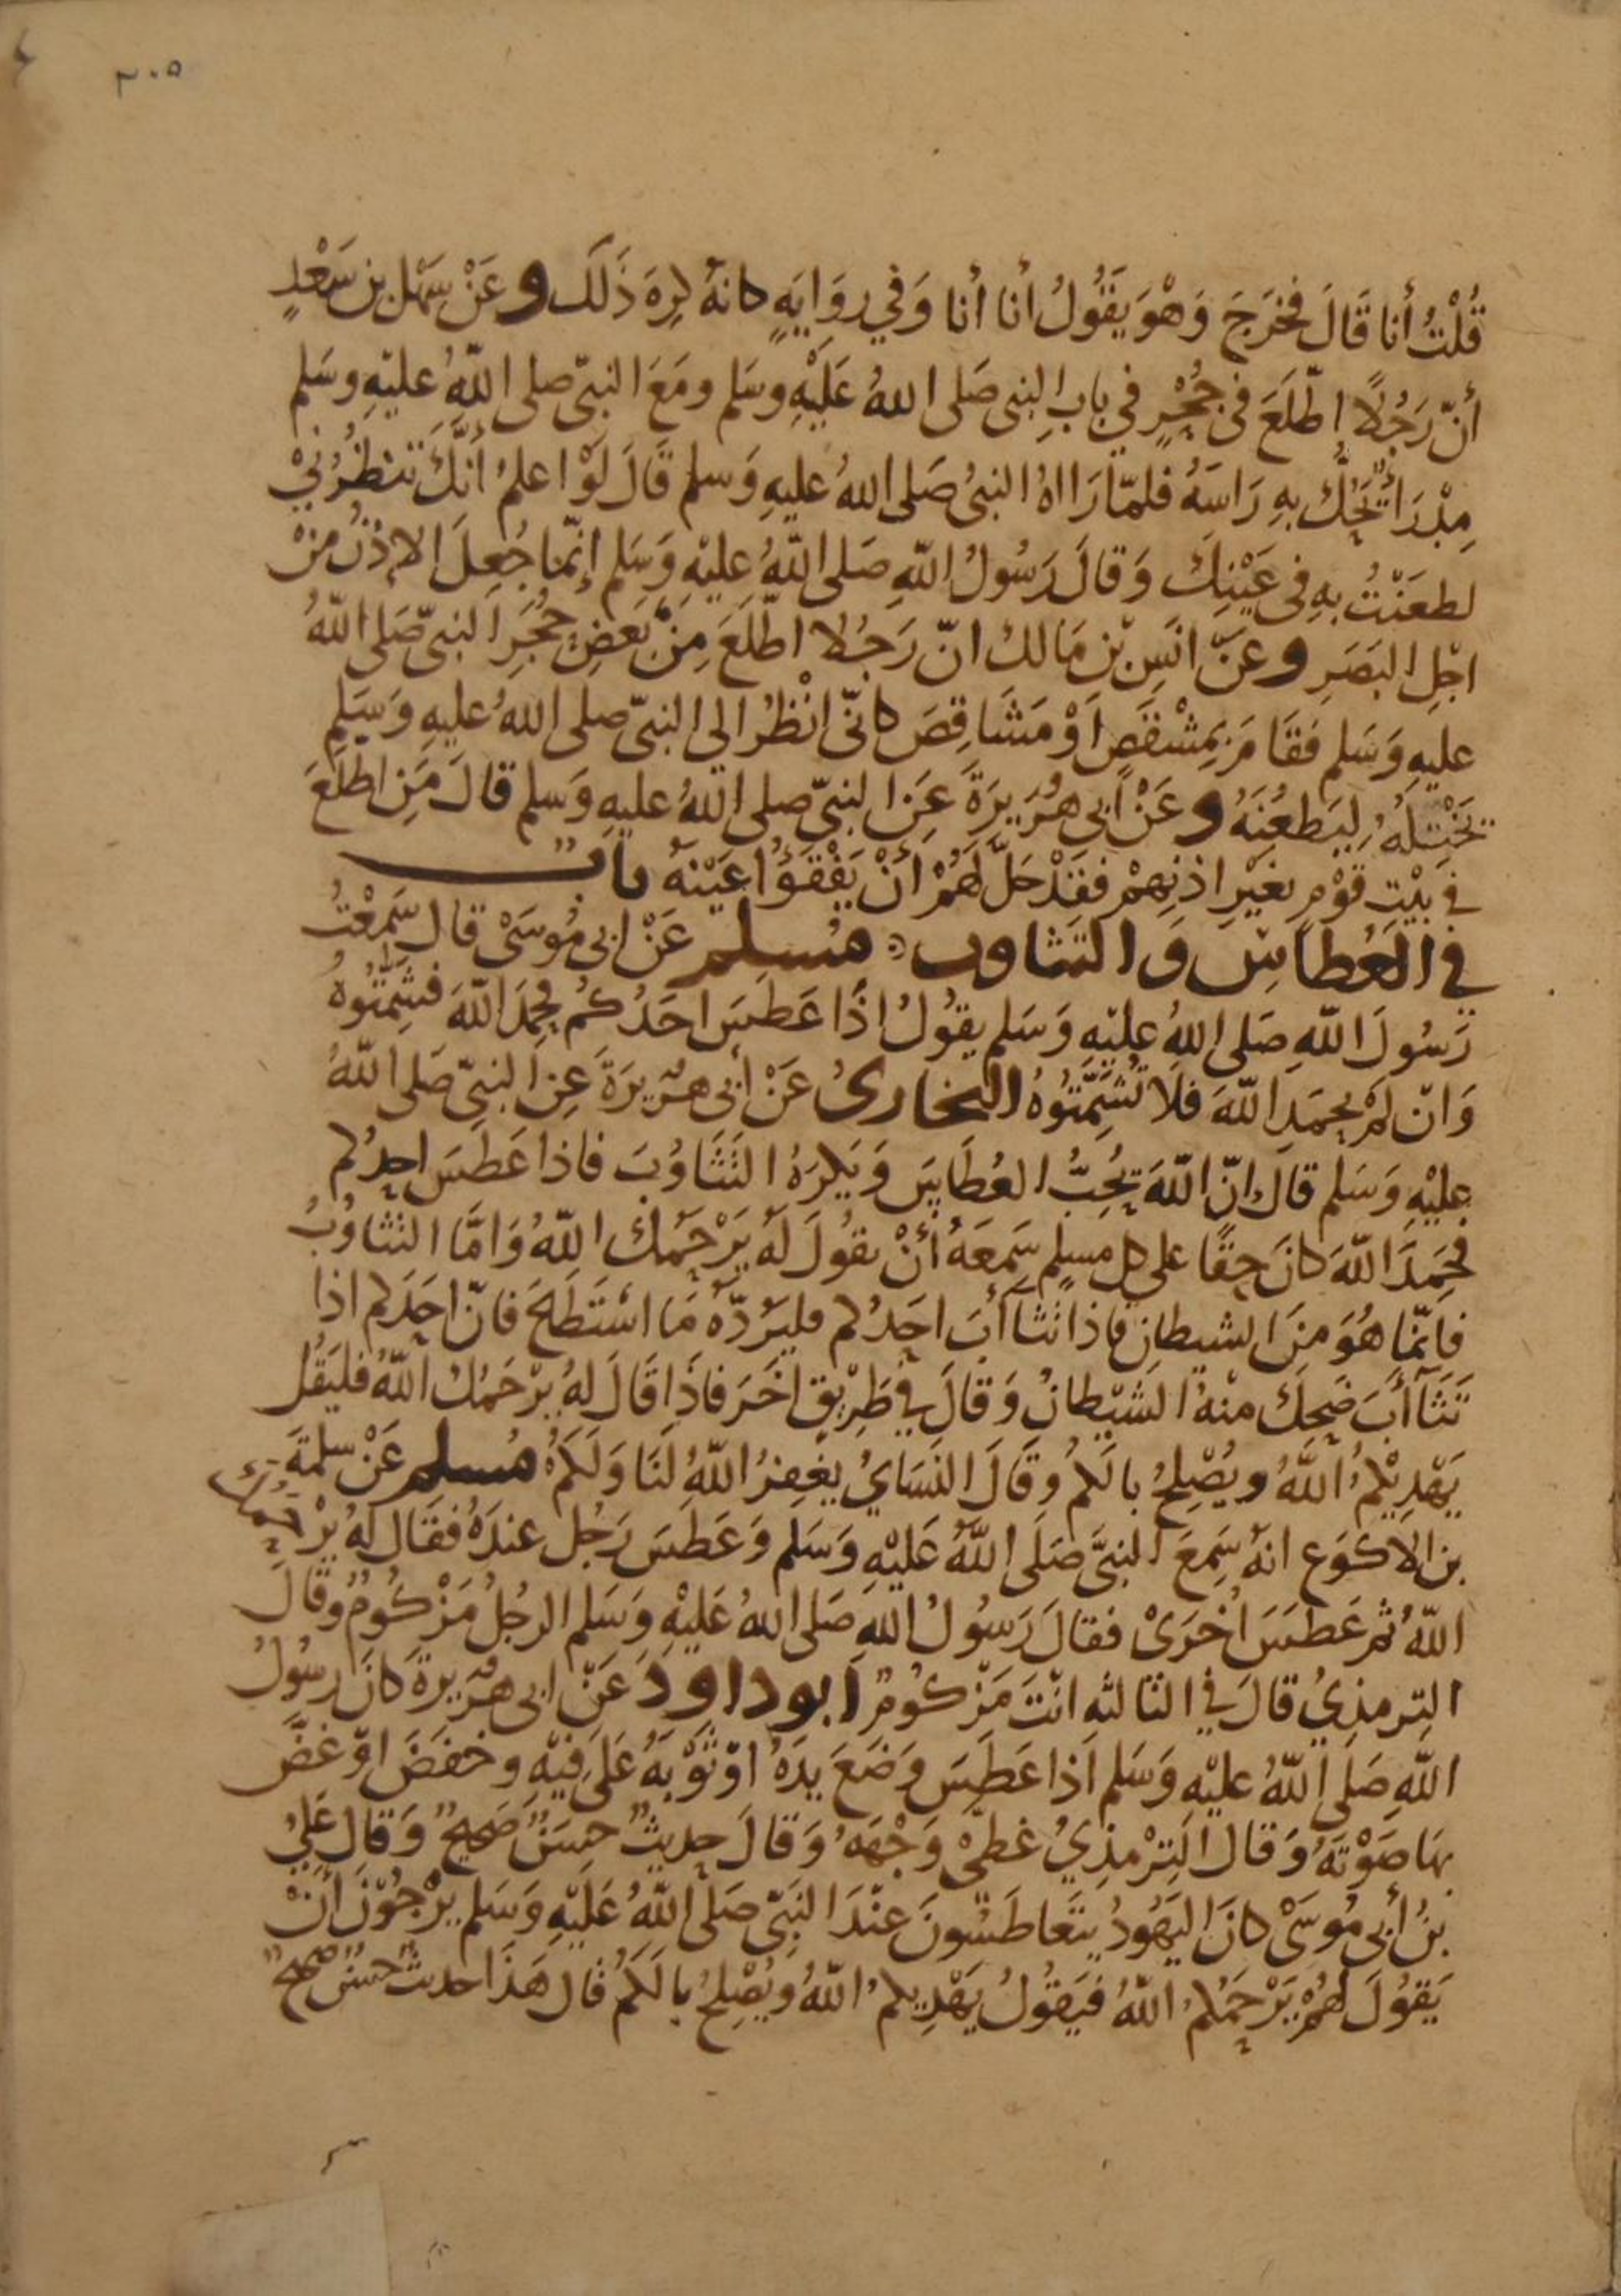 ٣٠٥
قُلْتُ أنا قَالَ فخرَجَ وَهْوَ يَقُولُ أنا أنا وَفي روَايَةٍ كانهُ كرِهَ ذَلَك وعَنْ سَهْل بن سَعْدٍ
أنّ رَجُلًا اطّلَعَ فى جُحْرٍ في بابِ النبى صَلى اللهُ عَلَيْهِ وسَلم ومَعَ النبىّ صلى اللّهُ عليْهِ وسَلم
مِدْرَأ يَحُكّ بهِ رَاسَهُ فلمّا رَااهُ النبىُ صَلى اللهُ عليهِ وَسلم قَالَ لَوْ اعلمُ أنَّكَ تنظُرُنِيْ
لطعَنْتُ بهِ فى عَيْنِكَ وَقالَ رَسُولُ اللّهِ صَلى اللّهُ عليْهِ وَسَلم إنّما جُعِلَ الاذْنُ منْ
اجْلِ البَصَرِ وعنْ انَسِ بْن مَالك انّ رَجُلا اطّلَعَ مِنْ بَعَضِ حُجَرِ النبىّ صَلى اللّهُ
عليهِ وَسَلم فقَامَ بِمِشْقَصٍ أوْ مَشَاقِصَ كانّى انْظُرُ الي النبىّ صلى اللهُ عليهِ وَسَلم
يَخْتِلهُ لِيَطعُنَهُ وعَنْ أبى هُرَيرَةَ عَن النبىّ صلى اللّهُ عليهِ وَسلم قالَ مَنِ اطلَعَ
في بَيْتِ قوْمٍ بغيْرِ اذنِهِمْ فقَدْ حَلّ لَهُمْ أنْ يَفْقَؤُا عَيْنهُ بابٌ
في العُطاسِ وَالتثاوب مُسلم عَنْ ابى مُوسَىْ قال سَمعْتُ
رَسُولَ اللّهِ صَلى اللهُ عليْهِ وَسَلم يقُولُ اذَا عَطسَ احَدُكُم فحَمِدَ اللّهَ فشَمِّتُوهُ
وَانْ لمْ يحمَدِ اللّهَ فلَا تُشَمِّتُوهُ البخارىُ عَنْ أبى هرَيرَةَ عنِ النبىّ صَلى اللّهُ
عليْهِ وَسَلم قال انّ اللّهَ يُحِبُّ العُطَاسَ وَيَكرَهُ التَثَاوُبَ فاذا عَطَسَ احدُكم
فحَمِدَ اللّهَ كانَ حقًا على كل مسلم سَمعَهُ أنْ يقُولَ لَهُ يَرْحَمُكَ اللّهُ وَامَّا التثاوُبُ
فانمّا هُوَ منَ الشيطانِ فاذا تَثاأبَ احَدُكم فليَرُدّهُ مَا اسْتَطَاعَ فانّ احَدَكم اذا
تَثَاأبَ ضَحِكَ منهُ الشيْطانُ وَقالَ في طَرِيْقٍ اخَرَ فاذَا قَالَ لهُ يرْحَمُك اللّهُ فليَقُل
يَهْدِيْكُمُ اللّهُ ويُصْلِحُ بالَكم وقَالَ النّسَايُ يغْفِرُ اللّهُ لَنَا وَلَكمُ مُسلم عَنْ سلَمةَ
بن الاكوَع انهُ سَمِعَ النبىَّ صَلَى اللّهُ عَليْهِ وَسَلم وَعَطسَ رَجُل عندَهُ فقَال لهُ يرْحَمُكَ
اللّهُ ثم عَطسَ اخْرَىْ فقالَ رَسُولُ اللّهِ صَلى اللهُ عَليْهِ وَسَلم الرجُلُ مَزْكُومٌ وقَالَ
التِرمذِيُ قالَ في الثالثهِ انْتَ مَزْكُومٌ أبو داوُدَ عَنْ ابى هرَيرةَ كانَ رسُولُ
اللّهِ صَلَى اللّهُ عليْهِ وَسَلم اذَا عَطَسَ وَضَعَ يدَهُ اوْ ثوْبَهُ عَلَى فِيْهِ وخفَضَ اوْ غضَّ
بهَا صَوْتهُ وَقال التِرْمذِيُ غطىْ وَجْهَهُ وَقالَ حديثٌ حسَنٌ صَحيحٌ وَقال عَليُ
بنُ أبى مُوسَىْ كانَ اليَهُودُ يتَعَاطَسُونَ عنْدَ النبىّ صَلَى اللّهُ عَلَيْهِ وَسَلم يرْجُوْنَ أنْ
يَقُولَ لهُمْ يَرْحَمُكمُ اللّهُ فيَقُولُ يَهْدِيكمُ اللّهُ ويُصْلِحُ بالَكمُ قال هَذَا حديثٌ حسَنٌ صَحيحٌ